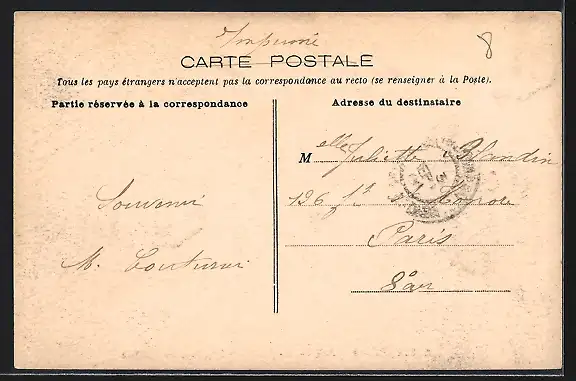 Imprimé
8
CARTE POSTALE
Tous les pays étrangers n'acceptent pas la correspondance au recto (se renseigner à la Poste).
Partie réservée à la correspondance
Adresse du destinataire
Melle Juliette Blondin
126 fg Honoré
Souvenir
Paris
M.